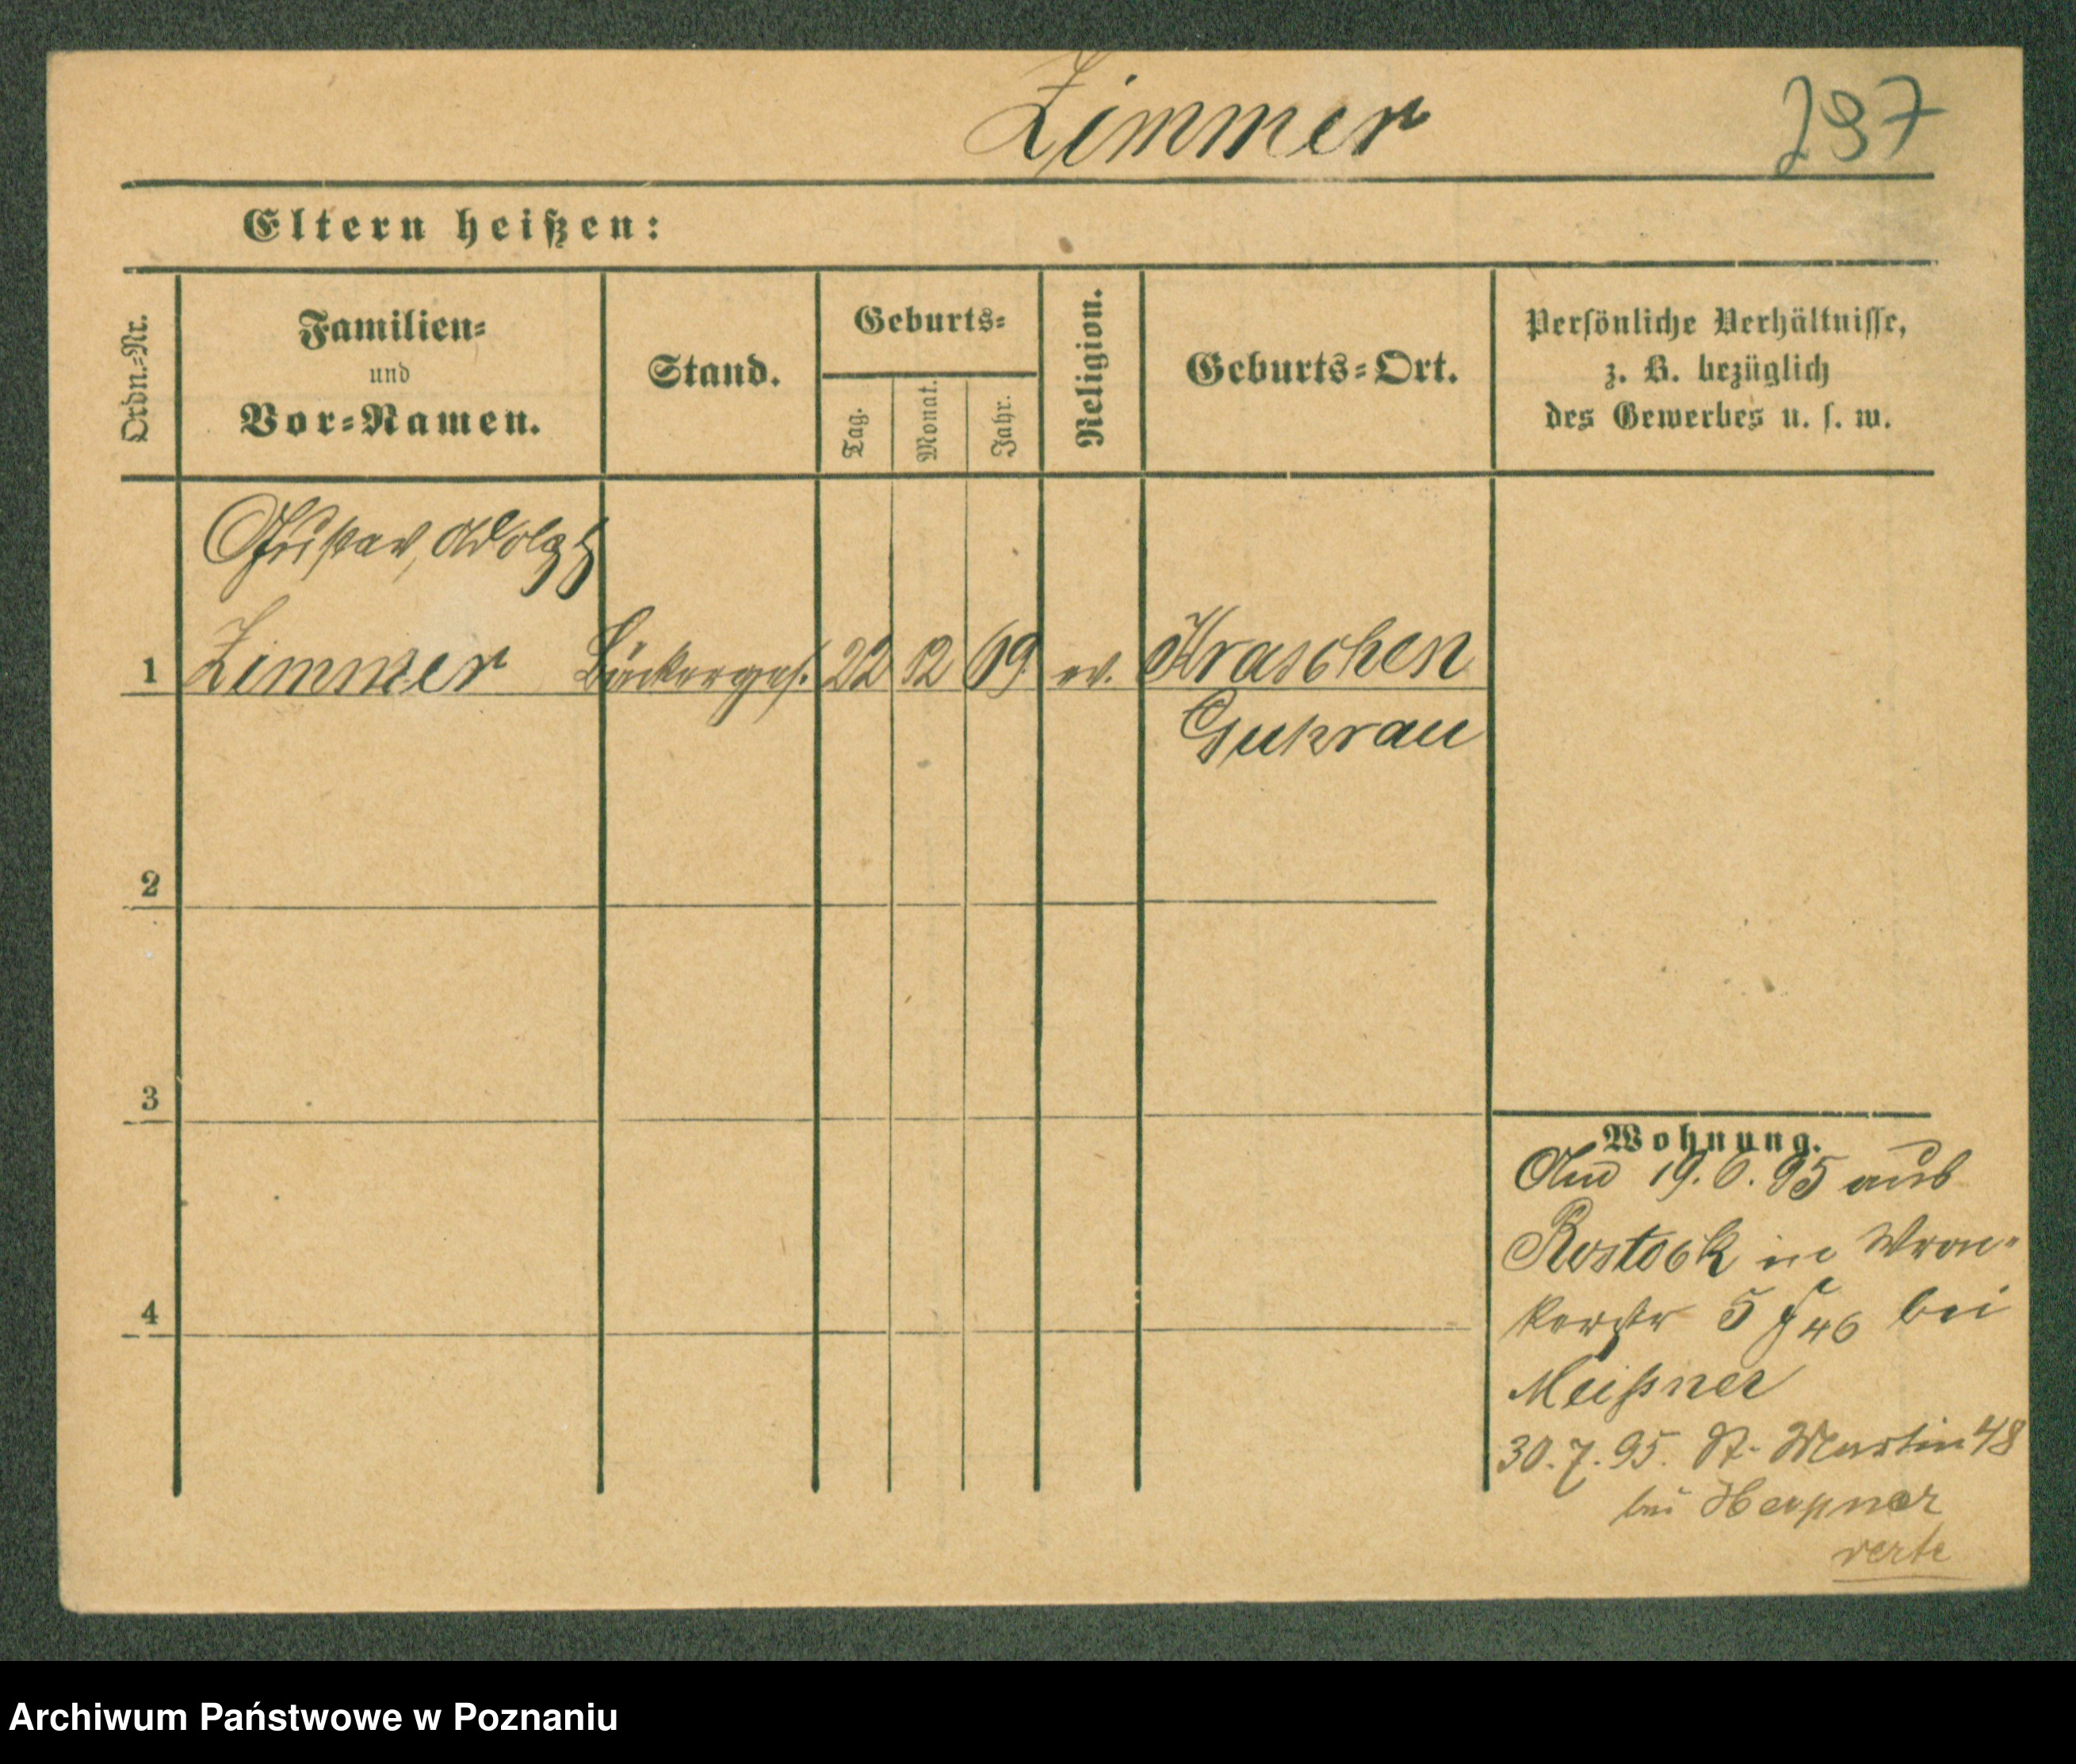 Zimmer 297
Eltern heißen:
Ordn.=Nr.
Familien=
und
Vor=Namen.
Stand.
Geburts=
Tag.
Monat.
Jahr.
Religion.
Geburts=Ort.
Persönliche Verhältnisse,
z. B. bezüglich
des Gewerbes u. s. w.
Gustav, Adolph
1 Zimmer Bäckerges. 22 12 69 ev. Kraschen
Guhrau
2
3
4
Wohnung.
19.6.95 aus
Rostock in Wron-
kerstr 5 46 bei
Meißner
30.7.95. St. Martin 48
bei
verte
Archiwum Państwowe w Poznaniu